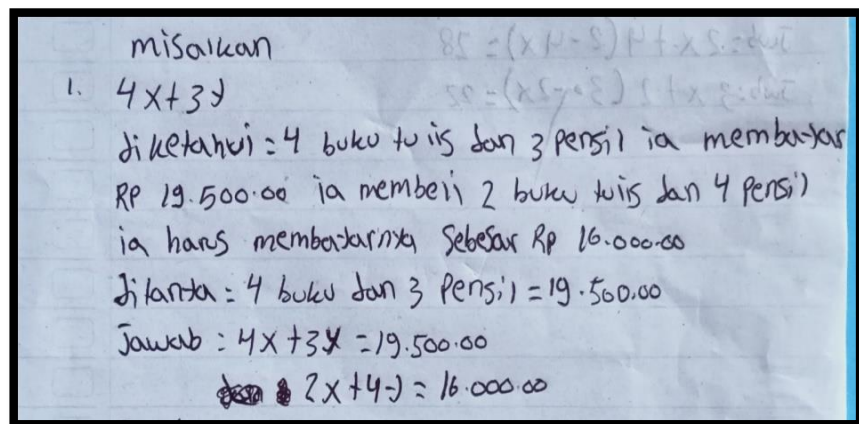 misalkan
1. 4x+3y
diketahui = 4 buku tulis dan 3 Pensil ia membayar
RP 19.500.00 ia membeli 2 buku tulis dan 4 Pensil
ia harus membayarnya Sebesar Rp 16.000.00
ditanya = 4 buku dan 3 Pensil = 19.500.00
Jawab : 4x +3y =19.500.00
2x +4y = 16.000.00